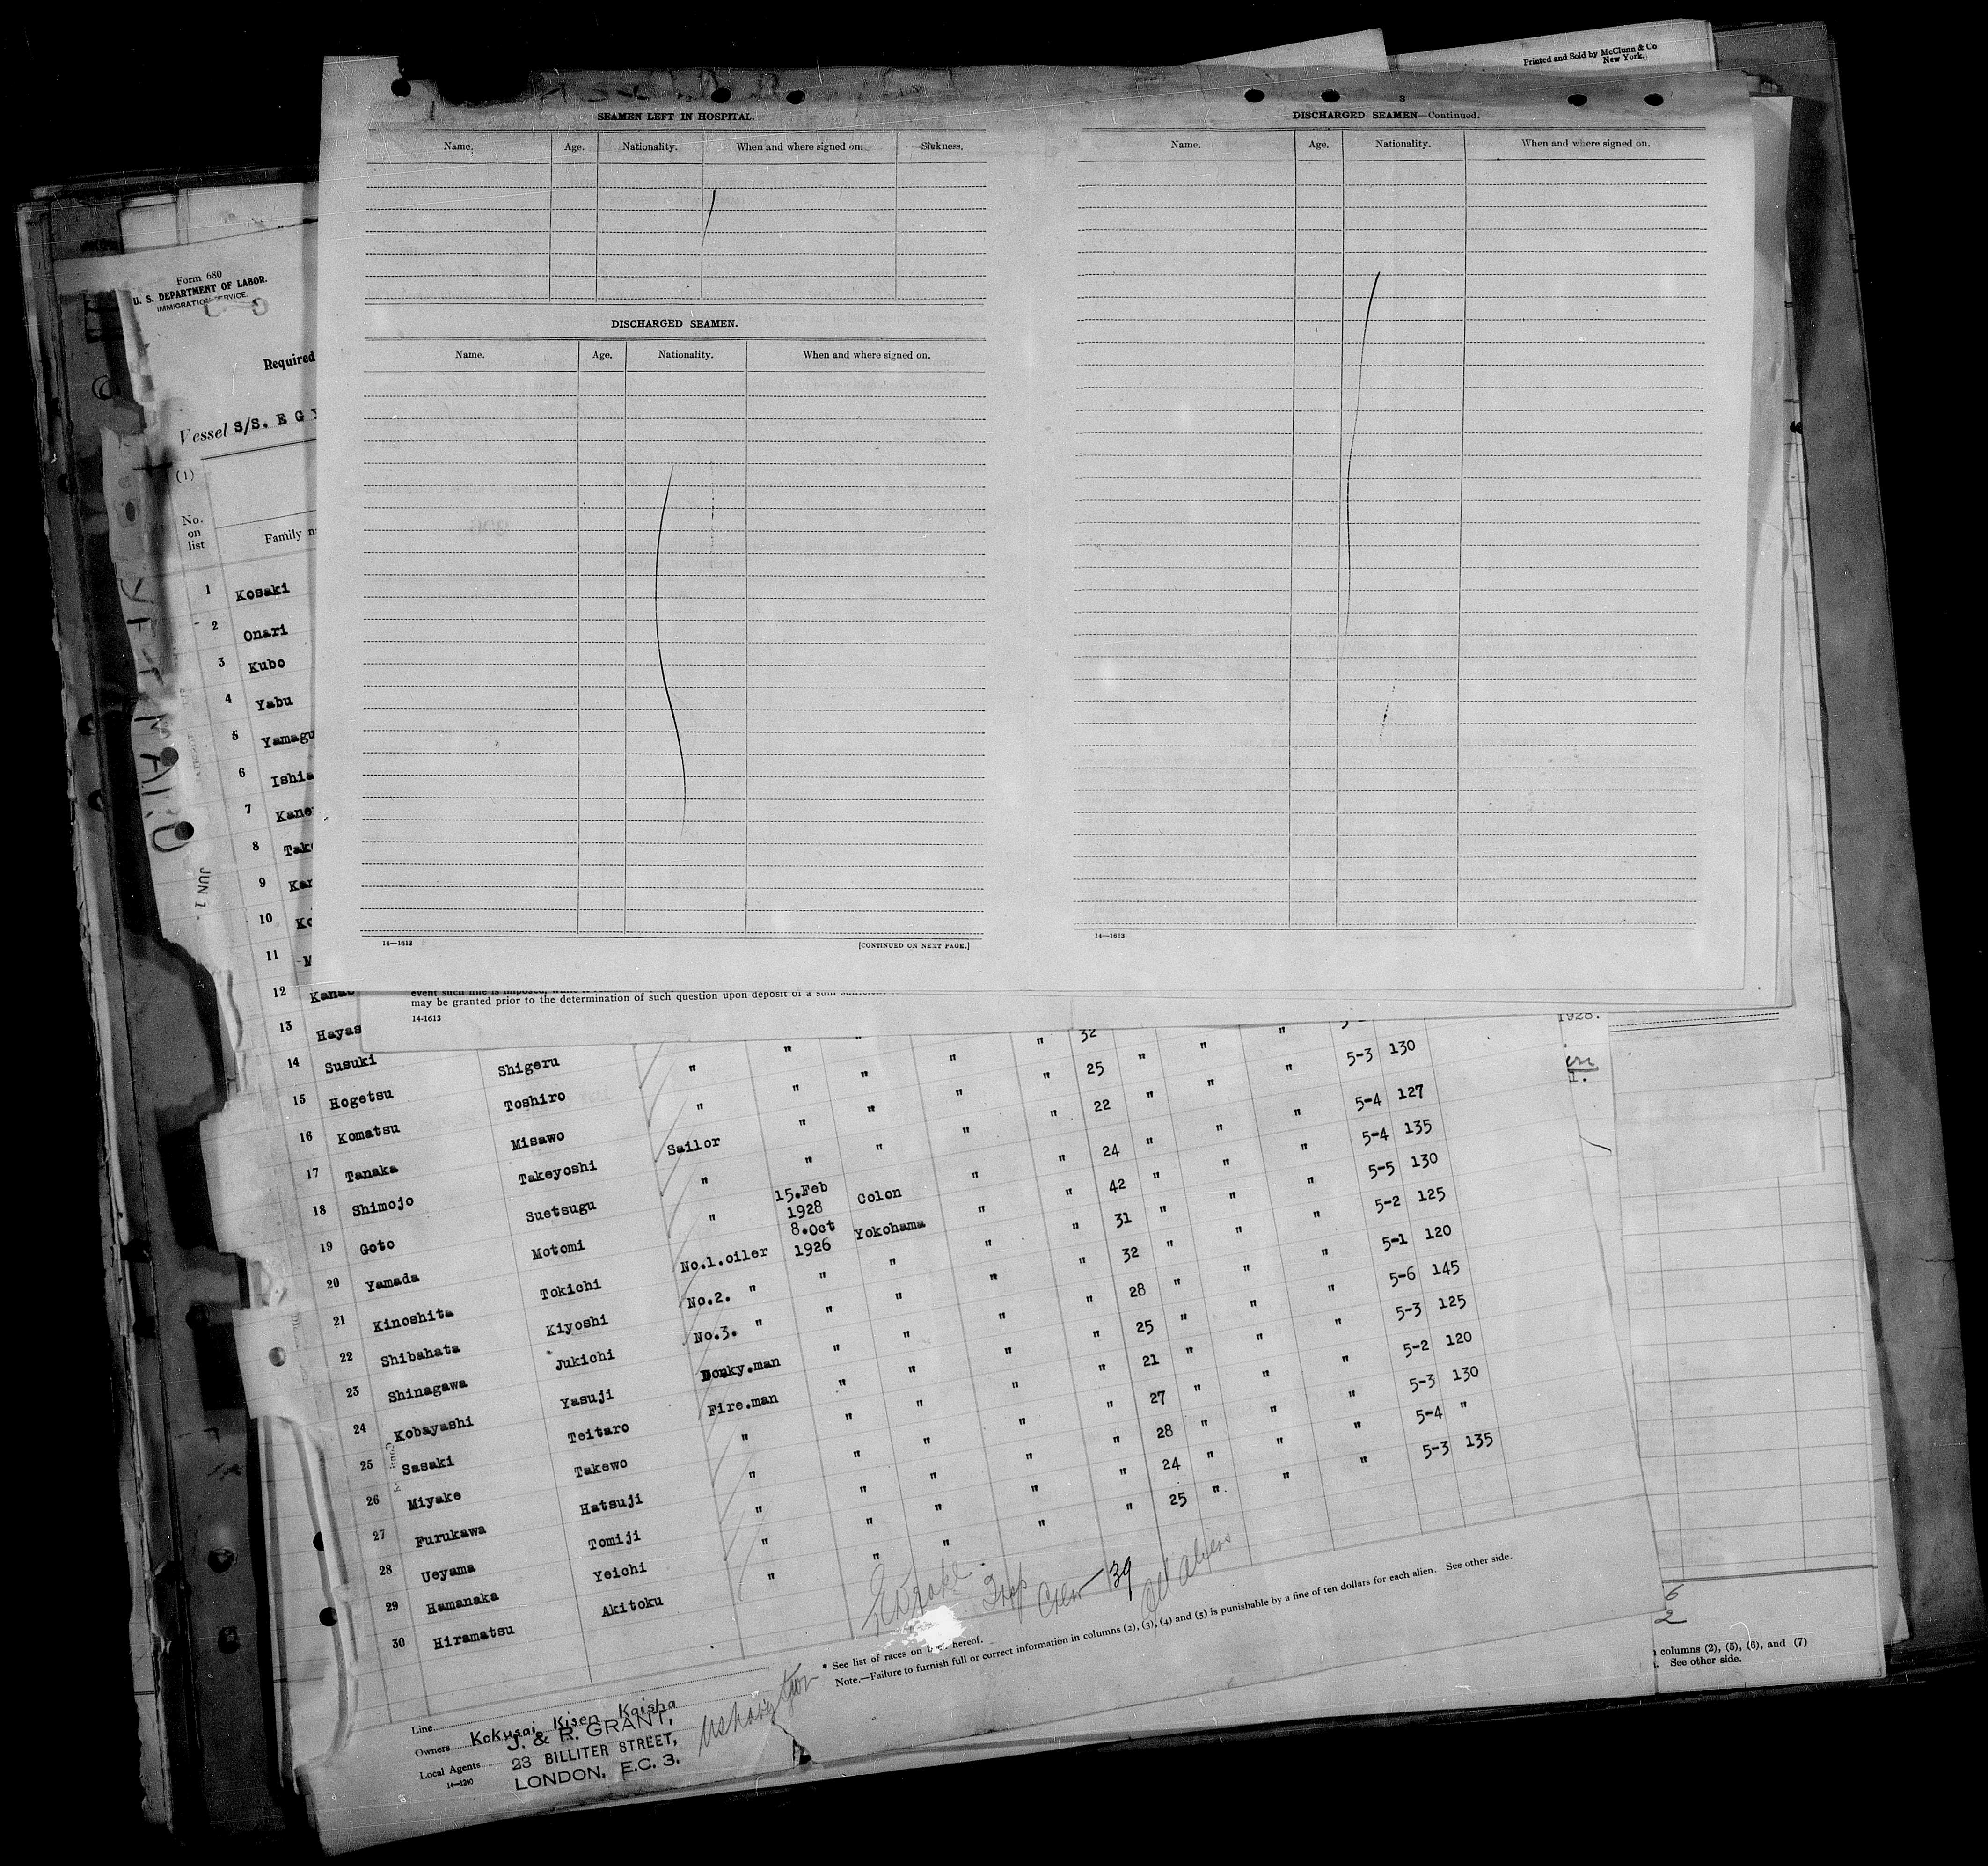 Printed and Sold by McClunn & Co
New York.
2
SEAMEN LEFT IN HOSPITAL.
Name. Age. Nationality. When and where signed on. Sickness.
DISCHARGED SEAMEN.
Name. Age. Nationality. When and where signed on.
14—1613 [CONTINUED ON NEXT PAGE.]
3
DISCHARGED SEAMEN—Continued.
Name. Age. Nationality. When and where signed on.
14—1613
may be granted prior to the determination of such question upon deposit of a sum
14-1613
Form 680
U. S. DEPARTMENT OF LABOR.
IMMIGRATION SERVICE.
Required
Vessel S/S. E G Y
(1)
No. on list
Family n
JUN 1
1 Kosaki
2 Onari
3 Kubo
4 Yabu
5 Yamagu
6 Ishi
7 Kane
8 Tak
9 Ka
10 K
11 M
12 Kana
13 Hayas
14 Susuki Shigeru "
15 Hogetsu Toshiro "
16 Komatsu Misawo Sailor
17 Tanaka Takeyoshi "
18 Shimojo Suetsugu " 15.Feb 1928 Colon
19 Goto Motomi No.1.oiler 8.Oct 1926 Yokohama
20 Yamada Tokichi No.2. "
21 Kinoshita Kiyoshi No.3. "
22 Shibahata Jukichi Donky.man
23 Shinagawa Yasuji Fire.man
24 Kobayashi Teitaro "
25 Sasaki Takewo "
26 Miyake Hatsuji "
27 Furukawa Tomiji "
28 Ueyama Yeichi "
29 Hamanaka Akitoku
30 Hiramatsu
1928.
32
25 5-3 130
22 5-4 127
24 5-4 135
42 5-5 130
31 5-2 125
32 5-1 120
28 5-6 145
25 5-3 125
21 5-2 120
27 5-3 130
28 5-4 "
24 5-3 135
25
Crew 39
All aliens
* See list of races on hereof.
Note.—Failure to furnish full or correct information in columns (2), (3), (4) and (5) is punishable by a fine of ten dollars for each alien. See other side.
Line
Owners Kokusai Kisen Kaisha
Local Agents J. & R. GRANT,
23 BILLITER STREET,
LONDON, E.C. 3.
14—1240
6
2
columns (2), (5), (6), and (7)
See other side.